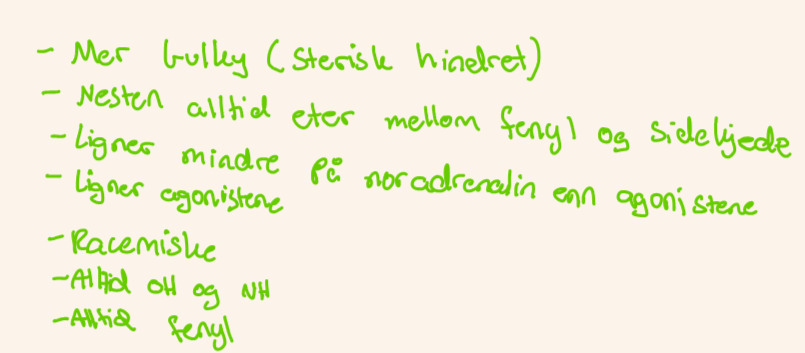 - Mer bulky (sterisk hindret)
- Nesten alltid eter mellom fenyl og sidekjede
- Ligner mindre på noradrenalin enn agonistene
- Ligner agonistene
- Racemiske
- Alltid OH og NH
- Alltid fenyl